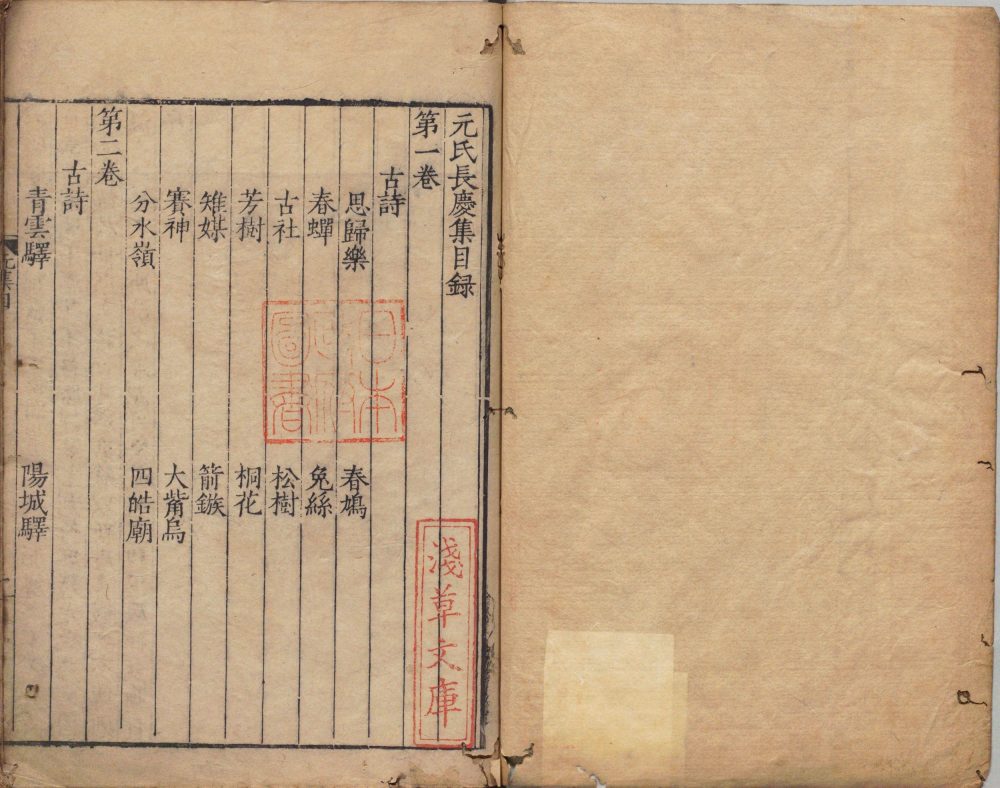 元氏長慶集目録
第一卷
古詩
思歸樂 春鳩
春蟬 兔絲
古社 松樹
芳樹 桐花
雉媒 箭鏃
賽神 大觜烏
分水嶺 四皓廟
第二卷
古詩
青雲驛 陽城驛
元集目
日本
政府
圖書
淺草文庫